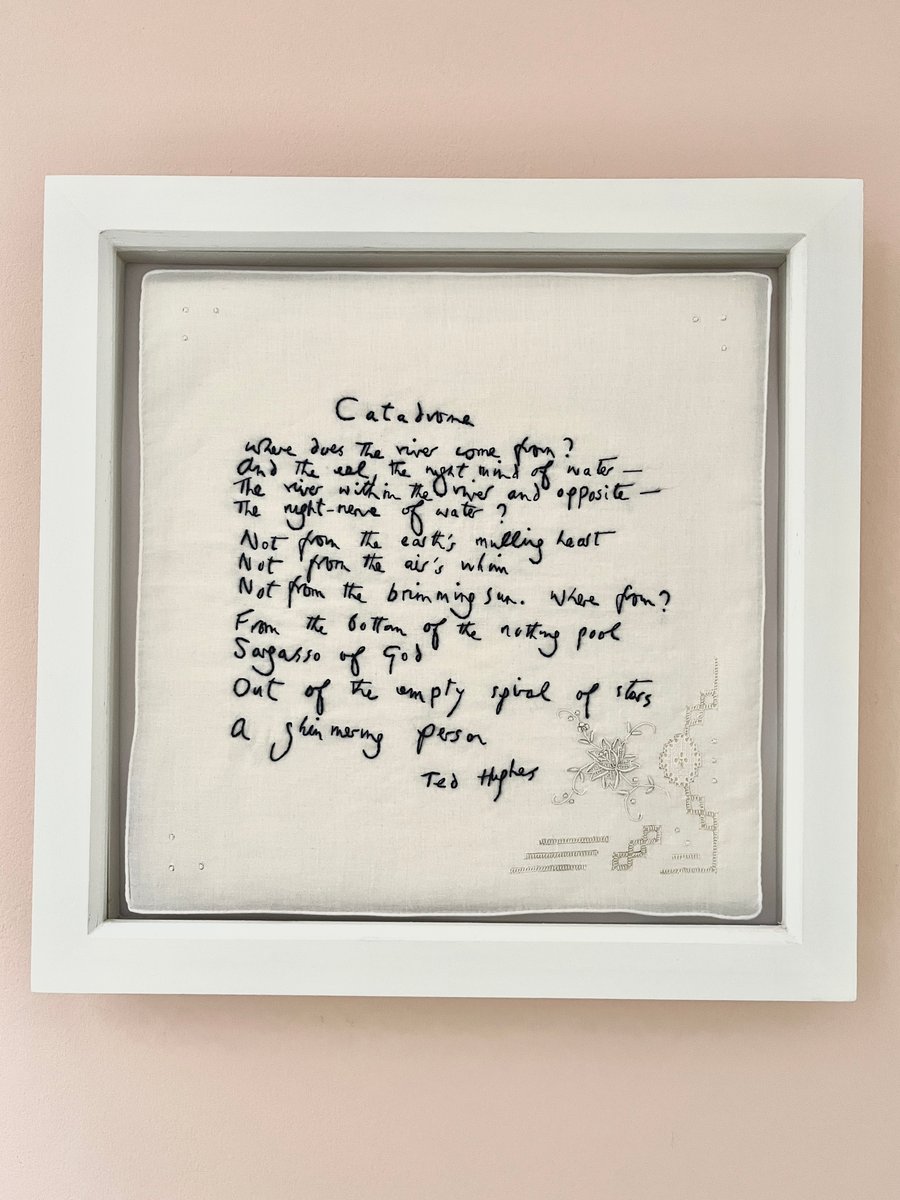 Catadrome
Where does the river come from?
And the eel, the night mind of water —
The river within the river and opposite —
The night-nerve of water?
Not from the earth's mulling heart
Not from the air's whim
Not from the brimming sun. Where from?
From the bottom of the nothing pool
Sargasso of God
Out of the empty spiral of stars
A glimmering person
Ted Hughes